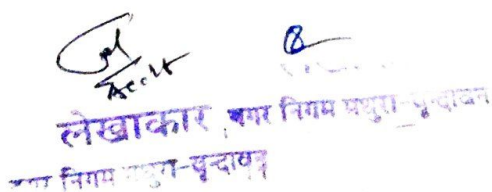 Acctt
लेखाकार
नगर निगम मथुरा-वृन्दावन
नगर निगम मथुरा-वृन्दावन